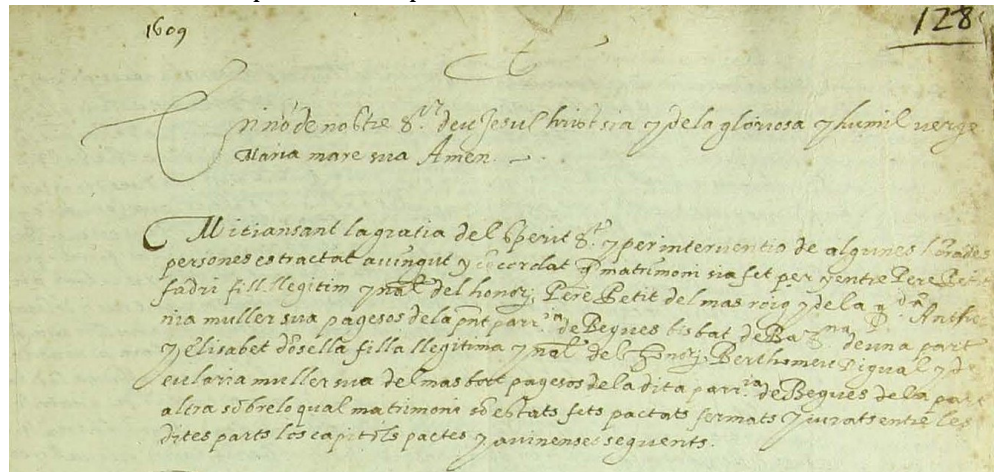 1609
128
En nō de nostre Sr. deu Jesu Christ sia y de la gloriosa y humil verge
Maria mare sua Amen.
Mitiansant la gratia del Sperit St. y per interventio de algunes honrades
persones es tractat avingut y cōcordat q̄ matrimoni sia fet per y entre Pere Petit
fadri fill llegitim y nāl del honor. Pere Petit del mas roig y de la Anthe
nia muller sua pagesos de la pn̄t parr.ia de Begues bisbat de Bar.na de una part
y Elisabet dōsella filla llegitima y nāl del honor. Berthomeu Sigual y de
eularia muller sua del mas font pagesos de la dita parr.ia de Begues de la part
altra sobre lo qual matrimoni sō estats fets pactats fermats y jurats entre les
dites parts los capitols pactes y avinenses seguents.